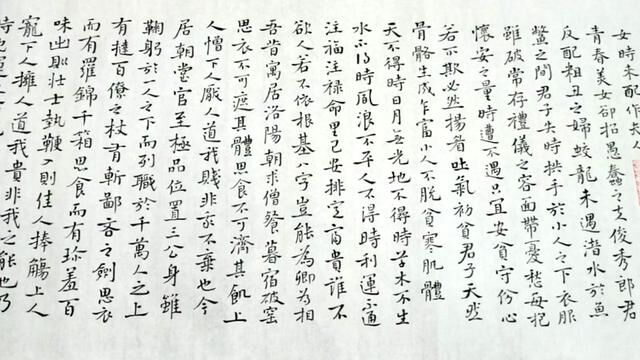 女時未配作夫人
青春美女卻招愚蠢之夫俊秀郎君
反配粗丑之婦蛟龍未遇潜水於魚
鱉之間君子失時拱手於小人之下衣服
雖破常存禮儀之容面帶憂愁每抱
懷安之量時遭不遇只宜安貧守份心
若不欺必然揚眉吐氣初貧君子天然
骨骼生成乍富小人不脱貧寒肌體
天不得時日月無光地不得時草木不生
水不得時風浪不平人不得時利運不通
注福注祿命里已安排定富貴誰不
欲人若不依根基八字豈能為卿為相
吾昔寓居洛陽朝求僧餐暮宿破窑
思衣不可遮其體思食不可濟其飢上
人憎下人厭人道我賤非我不棄也今
居朝堂官至極品位置三公身雖
鞠躬於人之下而列職於千萬人之上
有撻百僚之杖有斬鄙吝之劍思衣
而有羅錦千箱思食而有珍羞百
味出則壯士執鞭入則佳人捧觴上人
寵下人擁人道我貴非我之能也乃